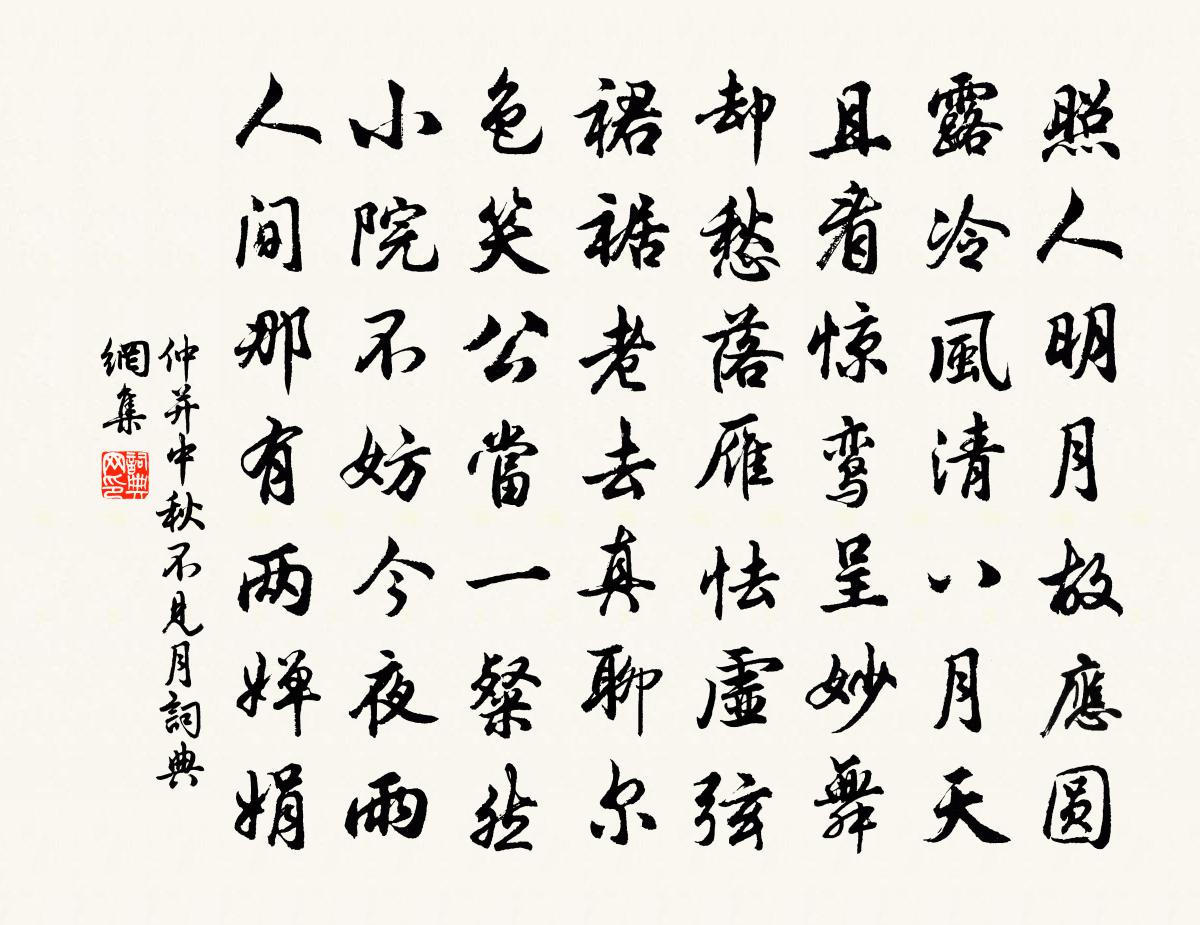 照人明月故應圆
露冷風清八月天
且看惊鸾呈妙舞
却愁落雁怯虚弦
裙裾老去真聊尔
色笑公當一粲然
小院不妨今夜雨
人间那有两婵娟
仲并中秋不見月詞典
網集
詞典
网印